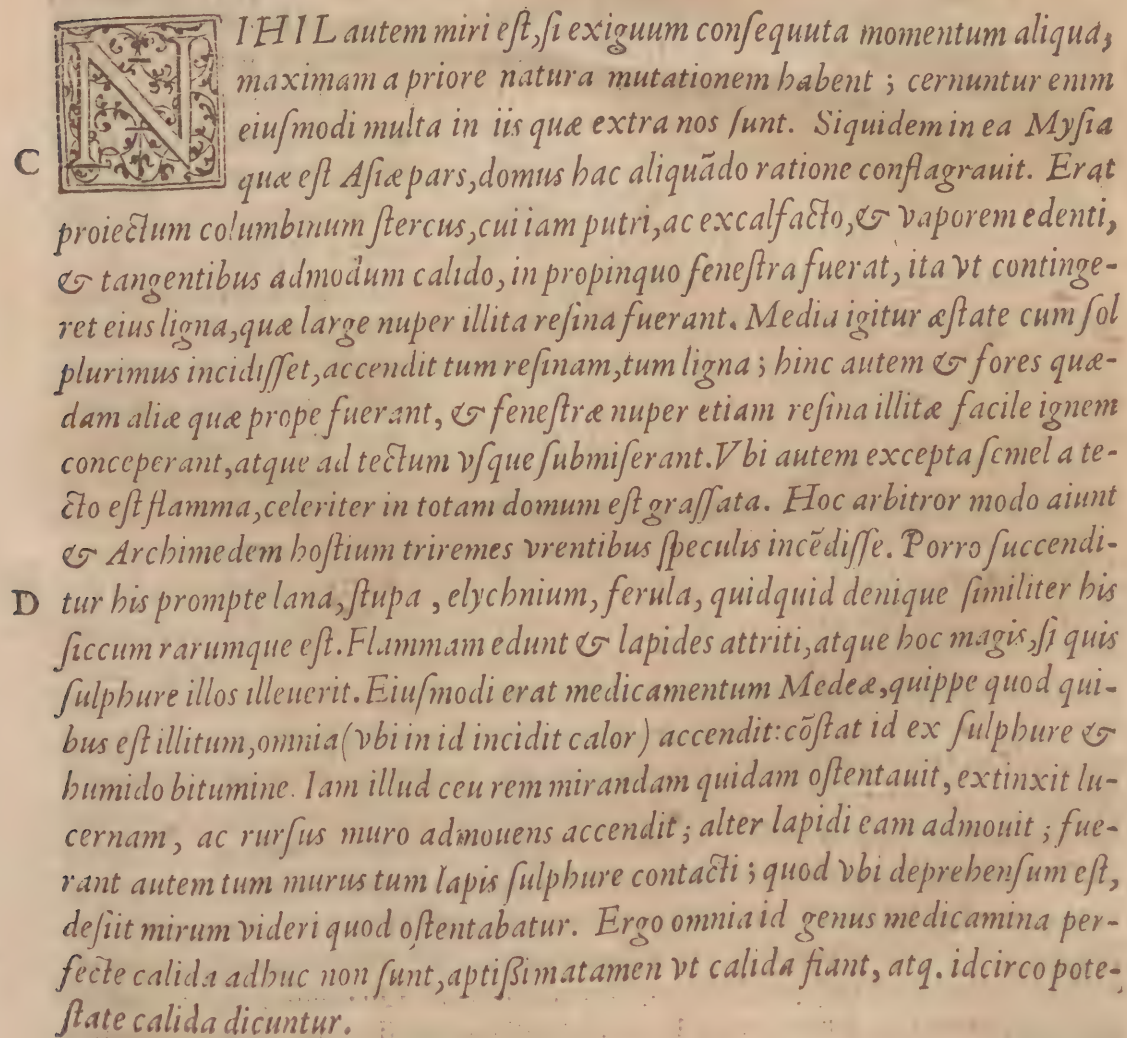 NIHIL autem miri eſt, ſi exiguum conſequuta momentum aliqua,
maximam a priore natura mutationem habent ; cernuntur enim
eiuſmodi multa in iis quæ extra nos ſunt. Siquidem in ea Myſia
C quæ eſt Aſiæ pars, domus hac aliquãdo ratione conflagrauit. Erat
proiectum columbinum ſtercus, cui iam putri, ac excalfacto, & vaporem edenti,
& tangentibus admodum calido, in propinquo feneſtra fuerat, ita vt continge-
ret eius ligna, quæ large nuper illita reſina fuerant. Media igitur æſtate cum ſol
plurimus incidiſſet, accendit tum reſinam, tum ligna ; hinc autem & fores quæ-
dam aliæ quæ prope fuerant, & feneſtræ nuper etiam reſina illitæ facile ignem
conceperant, atque ad tectum vſque ſubmiſerant. Vbi autem excepta ſemel a te-
cto eſt flamma, celeriter in totam domum eſt graſſata. Hoc arbitror modo aiunt
& Archimedem hoſtium triremes vrentibus ſpeculis incẽdiſſe. Porro ſuccendi-
D tur his prompte lana, ſtupa , elychnium, ferula, quidquid denique ſimiliter his
ſiccum rarumque eſt. Flammam edunt & lapides attriti, atque hoc magis, ſi quis
ſulphure illos illeuerit. Eiuſmodi erat medicamentum Medeæ, quippe quod qui-
bus eſt illitum, omnia (vbi in id incidit calor) accendit: cõſtat id ex ſulphure &
humido bitumine. Iam illud ceu rem mirandam quidam oſtentauit, extinxit lu-
cernam , ac rurſus muro admouens accendit ; alter lapidi eam admouit ; fue-
rant autem tum murus tum lapis ſulphure contacti ; quod vbi deprehenſum eſt,
deſiit mirum videri quod oſtentabatur. Ergo omnia id genus medicamina per-
fecte calida adhuc non ſunt, aptißima tamen vt calida fiant, atq. idcirco pote-
ſtate calida dicuntur.